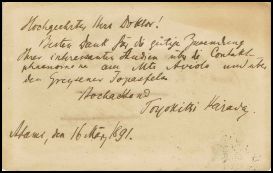 Hochgeehrter Herr Doktor!
Besten Dank für die gütige Zusendung
Ihrer interessanten Studien über die Contakt
phaenomene am Mte Aviolo und über
den Greifensteiner
Hochachtend
Toyokitsi Harada
den 16 März 1891.